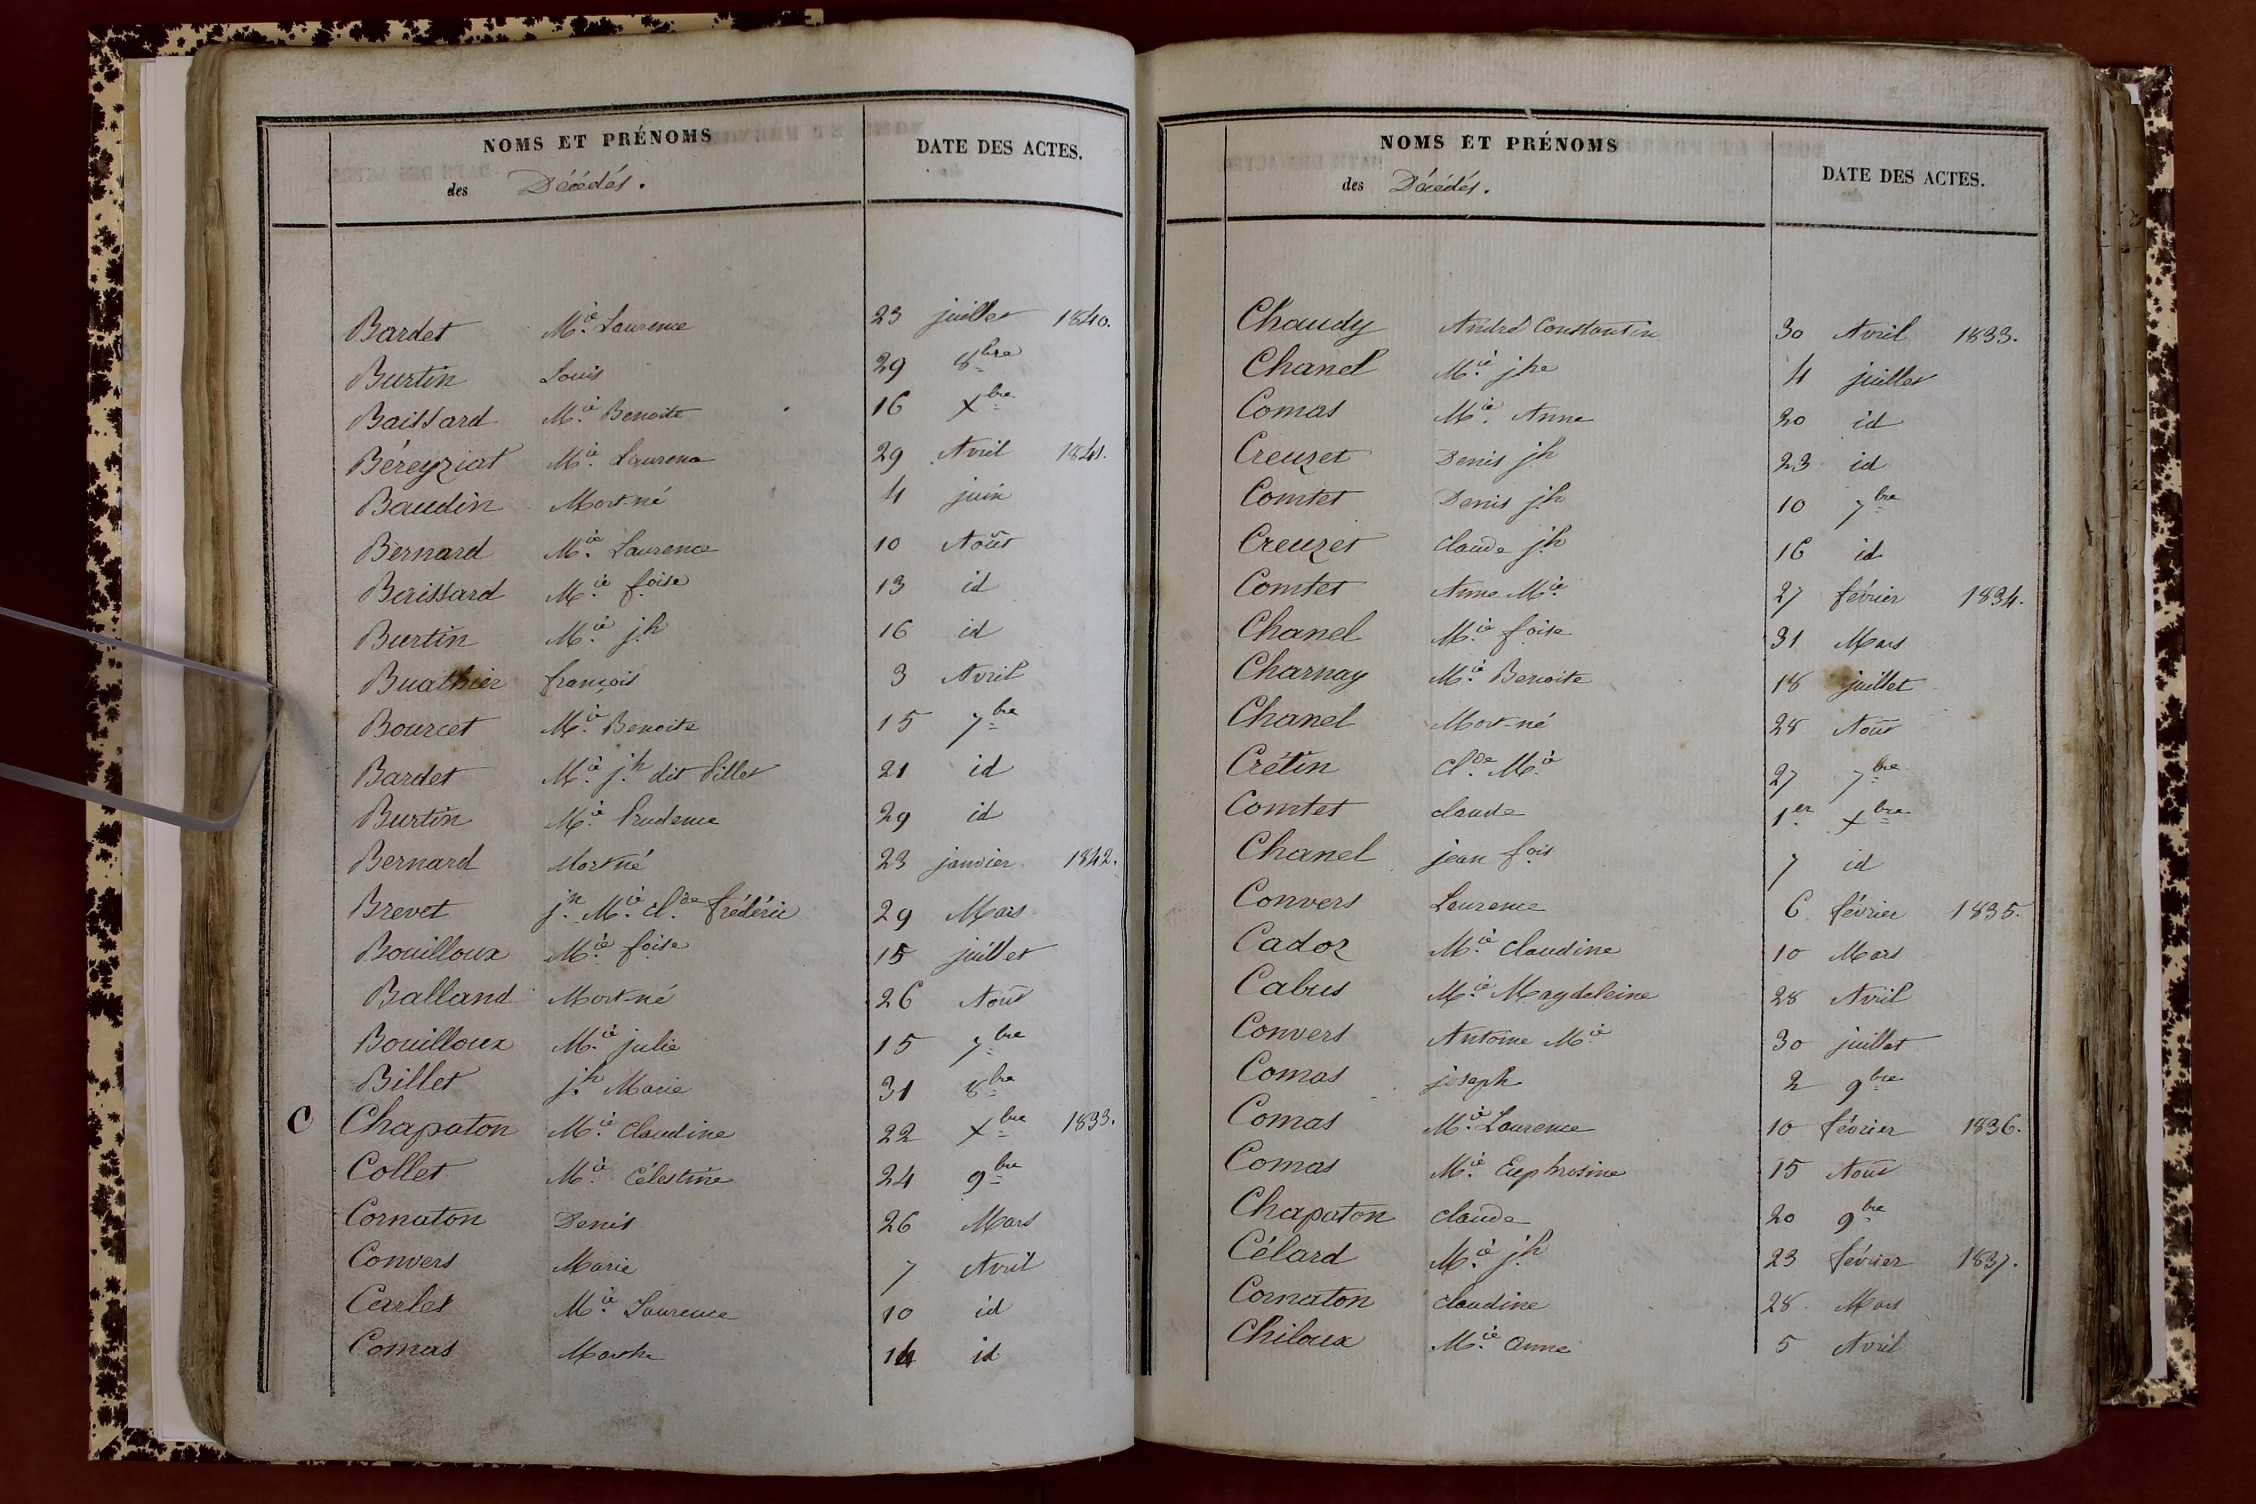 NOMS ET PRÉNOMS
des Décédés.
DATE DES ACTES.
Bardet M.ie Laurence 23 juillet 1840.
Burtin Louis 29 8bre
Baissard M.ie Benoite 16 Xbre
Béreyziat M.ie Laurence 29 Avril 1841.
Baudin Mort-né 4 juin
Bernard M.ie Laurence 10 Août
Baissard M.ie foise 13 id
Burtin M.ie j.h 16 id
Buathier françois 3 Avril
Bourcet M.ie Benoite 15 7bre
Bardet M.ie j.h dit Pillet 21 id
Burtin M.ie Prudence 29 id
Bernard Mort né 23 janvier 1842.
Brevet j.n M.ie cl.de frédéric 29 Mars
Bouilloux M.ie foise 15 juillet
Balland Mort-né 26 Août
Bouilloux M.ie julie 15 7bre
Billet j.h Marie 31 8bre
C Chapaton M.ie Claudine 22 Xbre 1833.
Collet M.ie Célestine 24 9bre
Cornaton Denis 26 Mars
Convers Marie 7 Avril
Carlet M.ie Laurence 10 id
Comas Marthe 14 id
NOMS ET PRÉNOMS
des Décédés.
DATE DES ACTES.
Chaudy André Constantin 30 Avril 1833.
Chanel M.ie jhe 4 juillet
Comas M.ie Anne 20 id
Creuzet Denis jh 23 id
Comtet Denis j.h 10 7bre
Creuzet claude j.h 16 id
Comtet Anne M.ie 27 février 1834.
Chanel M.ie foise 31 Mars
Charnay M.ie Benoite 18 juillet
Chanel Mort-né 28 Août
Crétin cl.de M.ie 27 7bre
Comtet claude 1er Xbre
Chanel jean fois 7 id
Convers Laurence 6 février 1835.
Cadoz M.ie claudine 10 Mars
Cabus M.ie Magdeleine 28 Avril
Convers Antoine M.ie 30 juillet
Comas joseph 2 9bre
Comas M.ie Laurence 10 février 1836.
Comas M.ie Euphrosine 15 Août
Chapaton claude 20 9bre
Célard M.ie j.h 23 février 1837.
Cornaton claudine 28 Mars
Chiloux M.ie anne 5 Avril